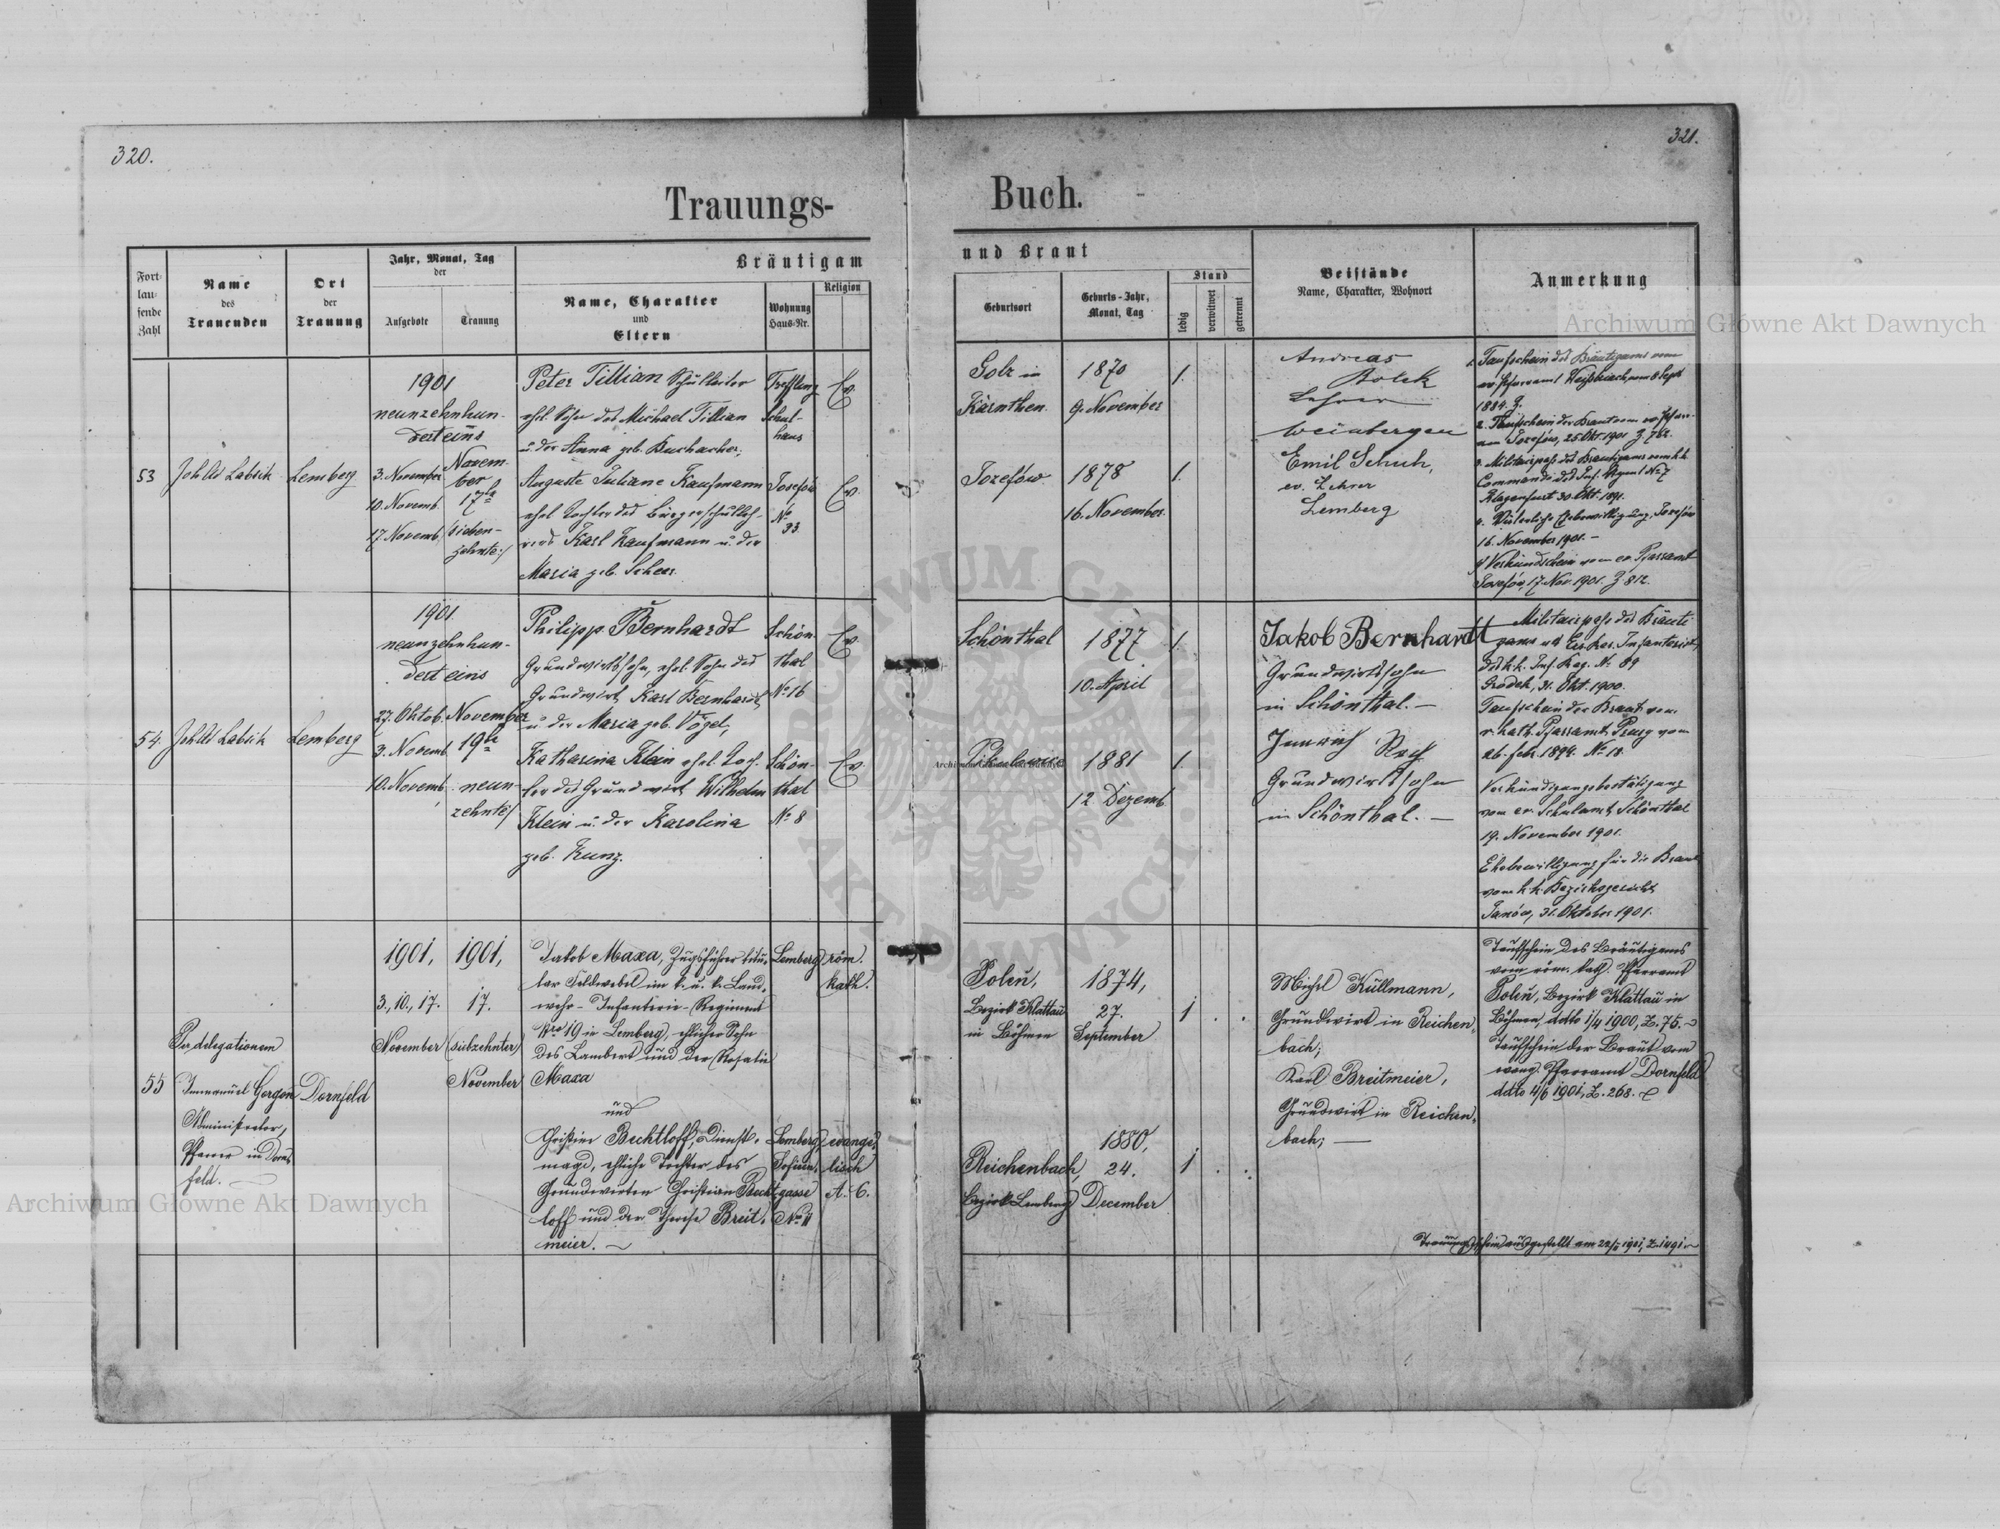 320.
321.
Trauungs-
Buch.
Fort-
lau-
fende
Zahl
Name
des
Trauenden
Ort
der
Trauung
Jahr, Monat, Tag
der
Aufgebote
Trauung
Bräutigam
Name, Charakter
und
Eltern
Wohnung
Haus-Nr.
Religion
und Braut
Geburtsort
Geburts-Jahr,
Monat, Tag
Stand
ledig
verwitwet
getrennt
Beistände
Name, Charakter, Wohnort
Anmerkung
53
Labsik
Lemberg
1901
neunzehnhun-
derteins
3. November
10. Novemb.
17. Novemb.
Novem-
ber
17te
sieben-
zehnte
Peter Tillian Schulleiter
ehel. Sohn des Michael Tillian
u. der Anna geb. Buchacher,
Treffling
Schul-
haus
Ev
Auguste Juliane Kaufmann
ehel. Tochter des Bürgerschulleh-
rers Karl Kaufmann u. der
Maria geb. Scheer.
Josefów
No
33
Ev.
in
Kärnthen.
1870
9. November
1.
Josefów
1878
16. November.
1.
Andreas
Bolek
Lehrer
Weinbergen
Emil Schuh,
ev. Lehrer
Lemberg
1. Taufschein des Bräutigams vom
ev. Pfarramt Weißbriach vom 8 Sept
1884.
2. Taufschein der Braut vom ev. Pfarr-
amt Josefów, 25. Okt. 1901 Z. 762.
3. Militärpaß des Bräutigams vom k.k.
Commando des Inf. Regmt No 7
Klagenfurt 30. Okt. 1891.
4. Väterliche Ehebewilligung Josefów
16. November 1901. -
Verkündschein vom ev. Pfarramt
Josefów, 17. Nov. 1901. Z 812.
54.
Labsik
Lemberg
1901.
neunzehnhun-
dert eins
27. Oktob.
3. Novemb
10. Novemb.
November
19te
neun-
zehnte
Philipp Bernhardt
Grundwirtssohn, ehel. Sohn des
Grundwirt Karl Bernhardt
u. der Maria geb. Vogel,
Schön-
thal
No 16
Ev
Katharina Klein ehel. Toch-
ter des Grundwirt Wilhelm
Klein u. der Karolina
geb. Kunz.
Schön-
thal
No 8
Ev.
Schönthal
1877
10. April
1.
1881
12 Dezemb.
1.
Jakob Bernhardt
Grundwirtssohn
in Schönthal. -
Grundwirtssohn
in Schönthal. -
Militairpaß des Bräuti-
gams
des k.k. Inf. Reg. No. 89
Grodek, 31. Okt. 1900.
Taufschein der Braut vom
r. kath. Pfarramt vom
26. Feb. 1894. No 18.
Verkündigungsbestätigung
vom ev. Schulamt Schönthal
19. November 1901.
Ehebewilligung für die Braut
vom k.k. Bezirksgericht
Janów, 31. Oktober 1901.
55
Per delegationem
Immanuel Gorgon
Administrator,
Pfarrer in Dorn-
feld.
Dornfeld
1901,
3., 10., 17.
November
1901,
17.
(siebzehnter)
November
Jakob Maxa, Zugsführer titu-
lar Feldwebel im k. u. k. Land-
wehr-Infanterie-Regiment
Nro 19 in Lemberg, ehlicher Sohn
des Lambert und der Rosalie
Maxa
und
Christine Bechtloff, Dienst-
magd, ehliche Tochter des
Grundwirten Christian Becht-
loff und der Therese Breit-
meier.
Lemberg
röm.
kath.
Lemberg,
Sofien-
gasse
No 11
evange-
lisch
A. C.
Poleň,
Bezirk Klattau
in Böhmen
1874,
27.
September
1
Reichenbach,
Bezirk Lemberg
1880,
24.
December
1
Michel Küllmann,
Grundwirt in Reichen-
bach;
Karl Breitmeier,
Grundwirt in Reichen-
bach;
Taufschein des Bräutigams
vom röm. kath. Pfarramt
Poleň, Bezirk Klattau in
Böhmen, ddto 1/4 1900, Z. 75.
Taufschein der Braut vom
evang. Pfarramt Dornfeld
ddto 4/6 1901, Z. 268.
Trauungsschein ausgestellt am
Archiwum Główne Akt Dawnych
Archiwum Główne Akt Dawnych
ARCHIWUM GŁÓWNE AKT DAWNYCH